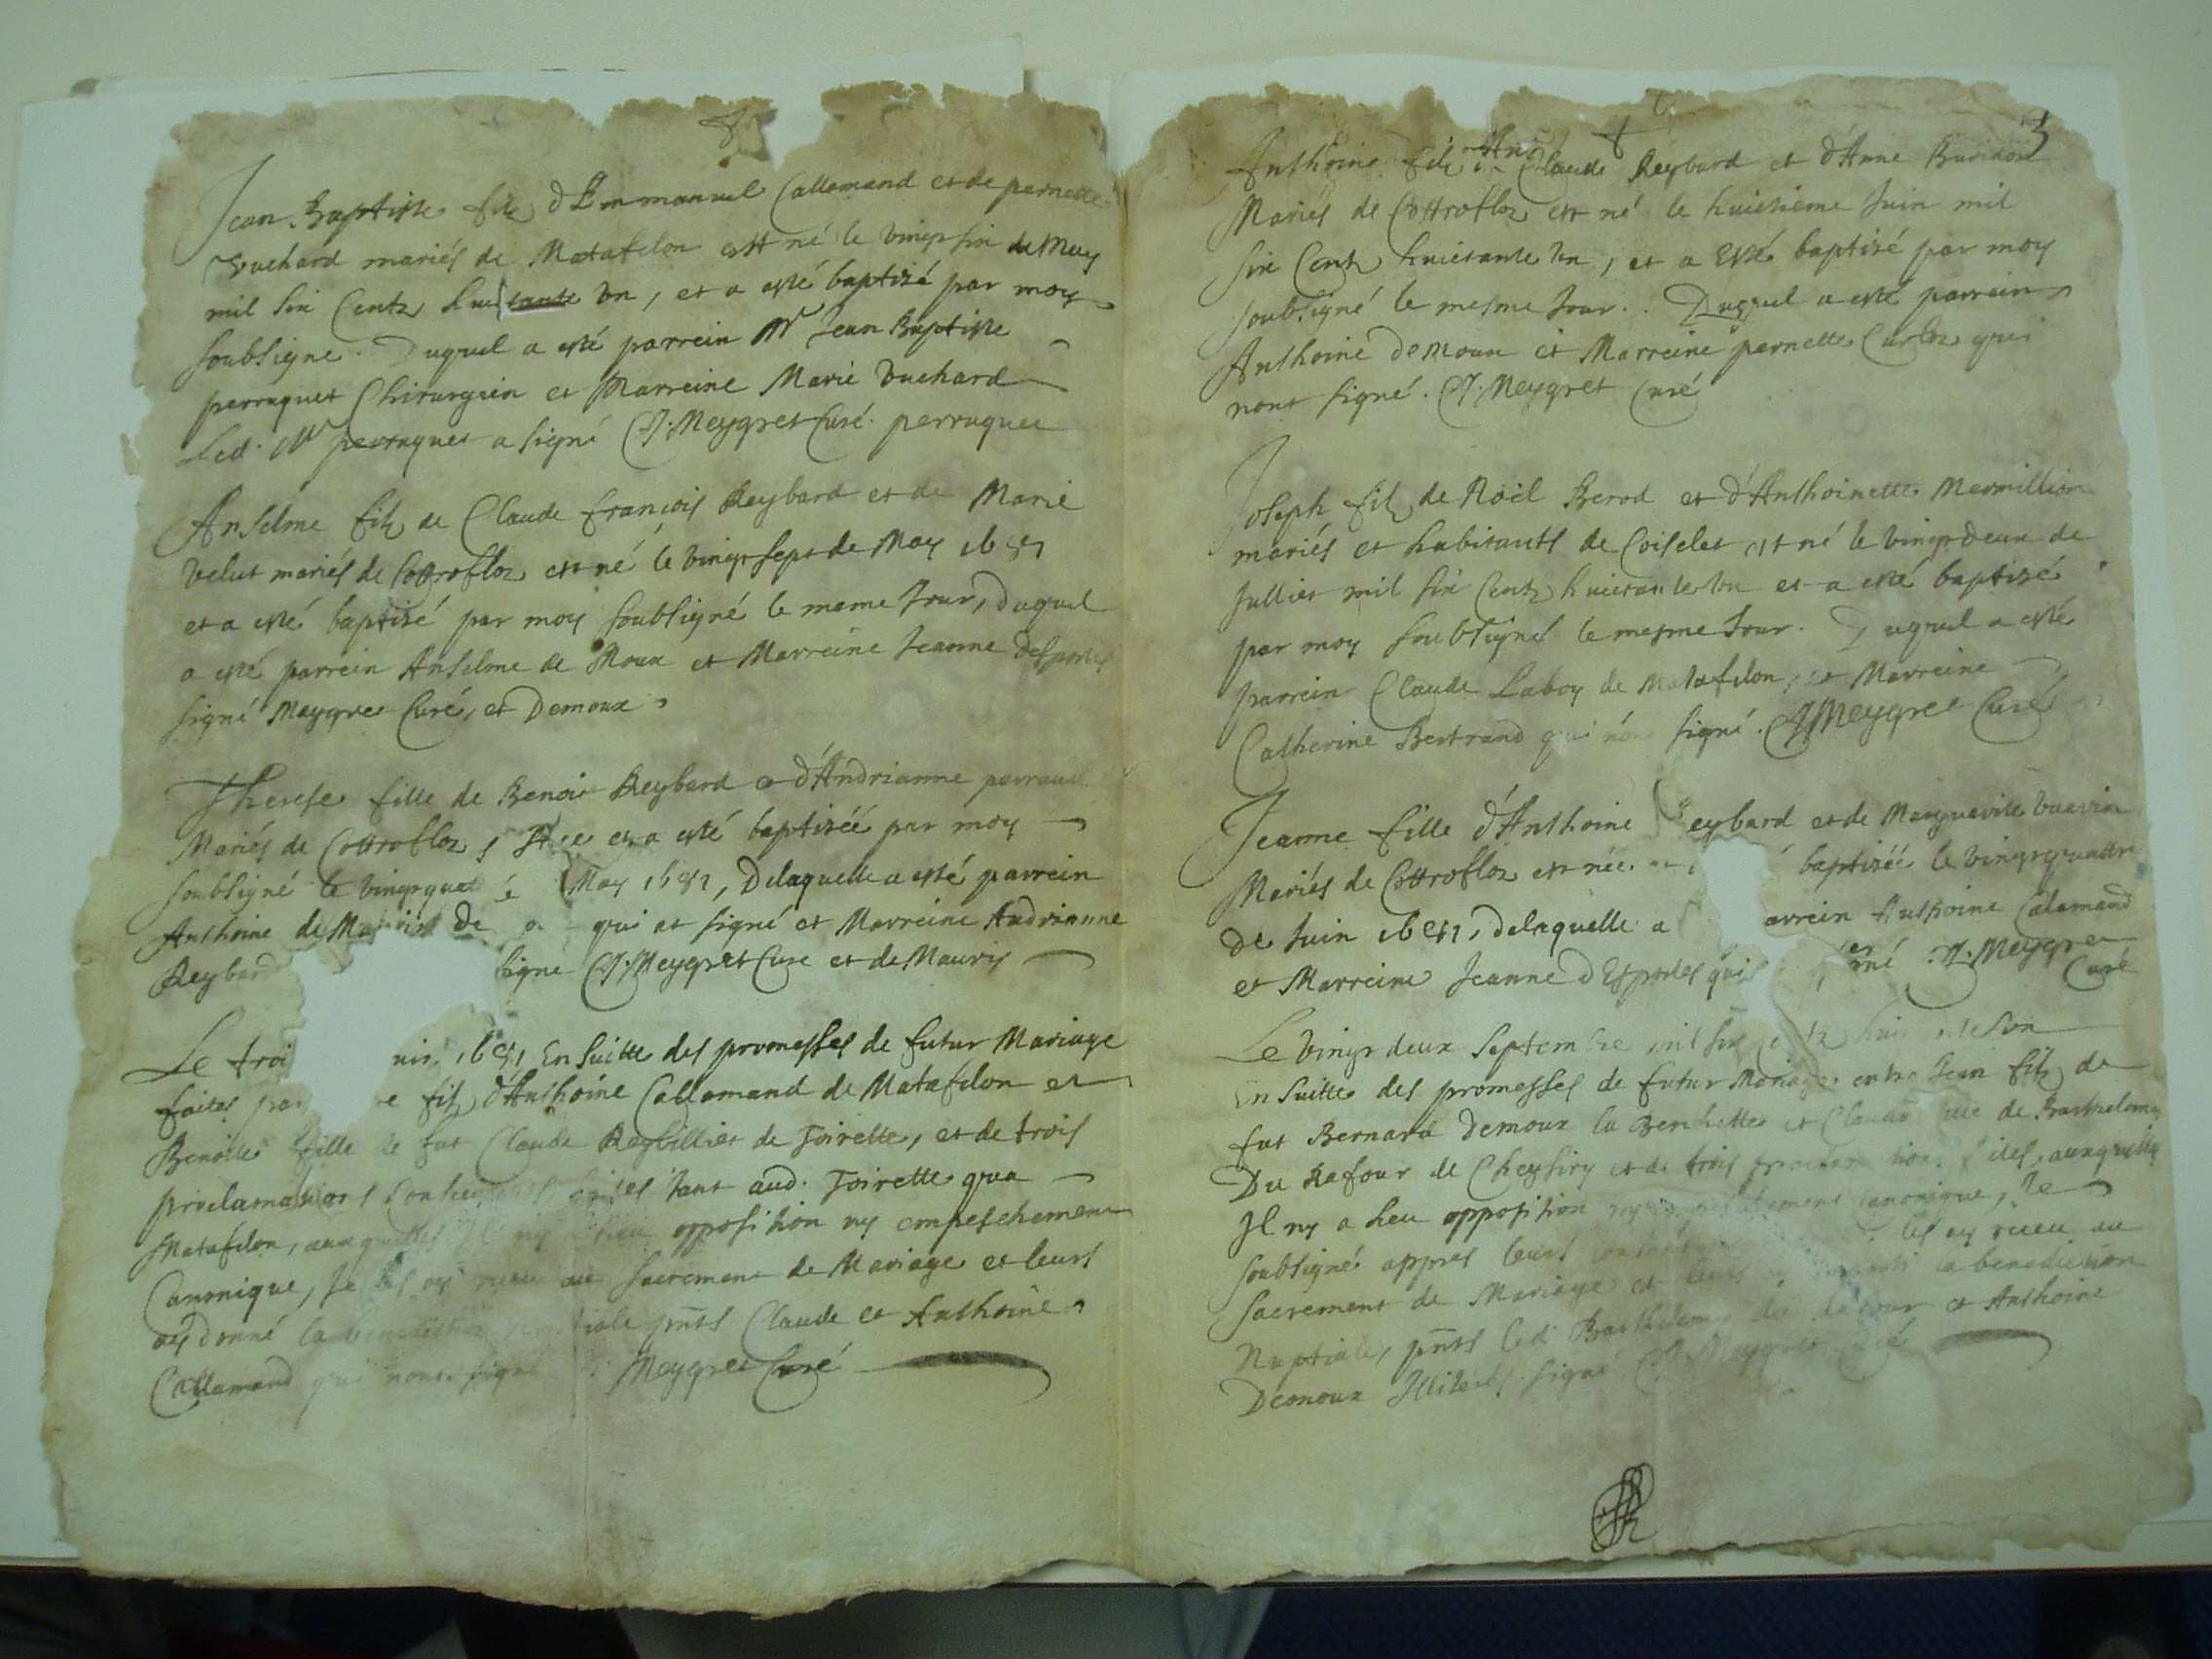 Jean Baptiste filz d'Emmanuel Callemand et de pernette
Vuchard mariés de Matafelon est né le vingt six de May
mil six Centz huictante un, et a esté baptizé par moy
soubsigne. Duquel a esté parrein Mr Jean Baptiste
perruquet Chirurgien et Marreine Marie Vuchard
Led. Mr perruquet a signé Meygret Curé. perruquet
Anselme filz de Claude françois Reybard et de Marie
Velut mariés de Cottrofloz est né le vingt sept de May 1681
et a esté baptizé par moy soubsigné le meme Jour, duquel
a esté parrein Anselme de Moux et Marreine Jeanne desportes
signé Meygret Curé, et Demoux
Therese fille de Benoit Reybard et d'Andrianne perraud
Mariés de Cottrofloz, et a esté baptizéé par moy
soubsigné le vingt May 1681, Delaquelle a esté parrein
Anthoine de qui at signé et Marreine Andrianne
Reybard signe Meygret Cure et de Mauris
Le troi 1681 En suitte des promesses de futur Mariage
faites par filz d'Anthoine Callamand de Matafelon et
Benoite fille de fut Claude Reybillier de Toirette, et de trois
proclamations tant aud. Toirette qua
Matafelon, auxquelles opposition ny empeschement
Canonique, Je les ay receu au sacrement de Mariage et leurs
ay donné la pnts Claude et Anthoine
Callamand qui nont signé Meygret Curé
3
Anthoine filz Claude Reybard et d'Anne
Mariés de Cottrofloz est né le huictieme Juin mil
six Centz huictante un, et a Esté baptizé par moy
soubsigné le mesme Jour. Duquel a esté parrein
Anthoine Demoux et Marreine pernette qui
nont signé. J. Meygret Curé
Joseph filz de Noël Berod et d'Anthoinette Mermillion
mariés et habitants de Coiselet est né le vingt deux de
Juillet mil six Centz huictante un et a esté baptizé
par moy soubsigné le mesme Jour. Duquel a esté
parrein Claude Laboy de Matafelon, et Marreine
Catherine Bertrand qui signé. J Meygret Curé
Jeanne fille d'Anthoine Reybard et de Marguerite Vuavin
Mariés de Cottrofloz est née baptizéé le vingt quattre
De Juin 1681, delaquelle a parrein Anthoine Calamand
et Marreine Jeanne d'Esportes qui J. Meygret
Curé
Le vingt deux Septembre mil six
En suitte des promesses de futur Mariage entre Jean filz de
fut Bernard Demoux la Berchette et de Barthelemy
Du Rafour de Cheysiry et de trois auxquelles
Il ny a heu opposition canonique, Je
soubsigné appres leurs les ay receu au
Sacrement de Mariage et leurs la benediction
Nuptiale, pnts led. Barthelemy du Rafour et Anthoine
Demoux Illiteres. signé Meygret Curé